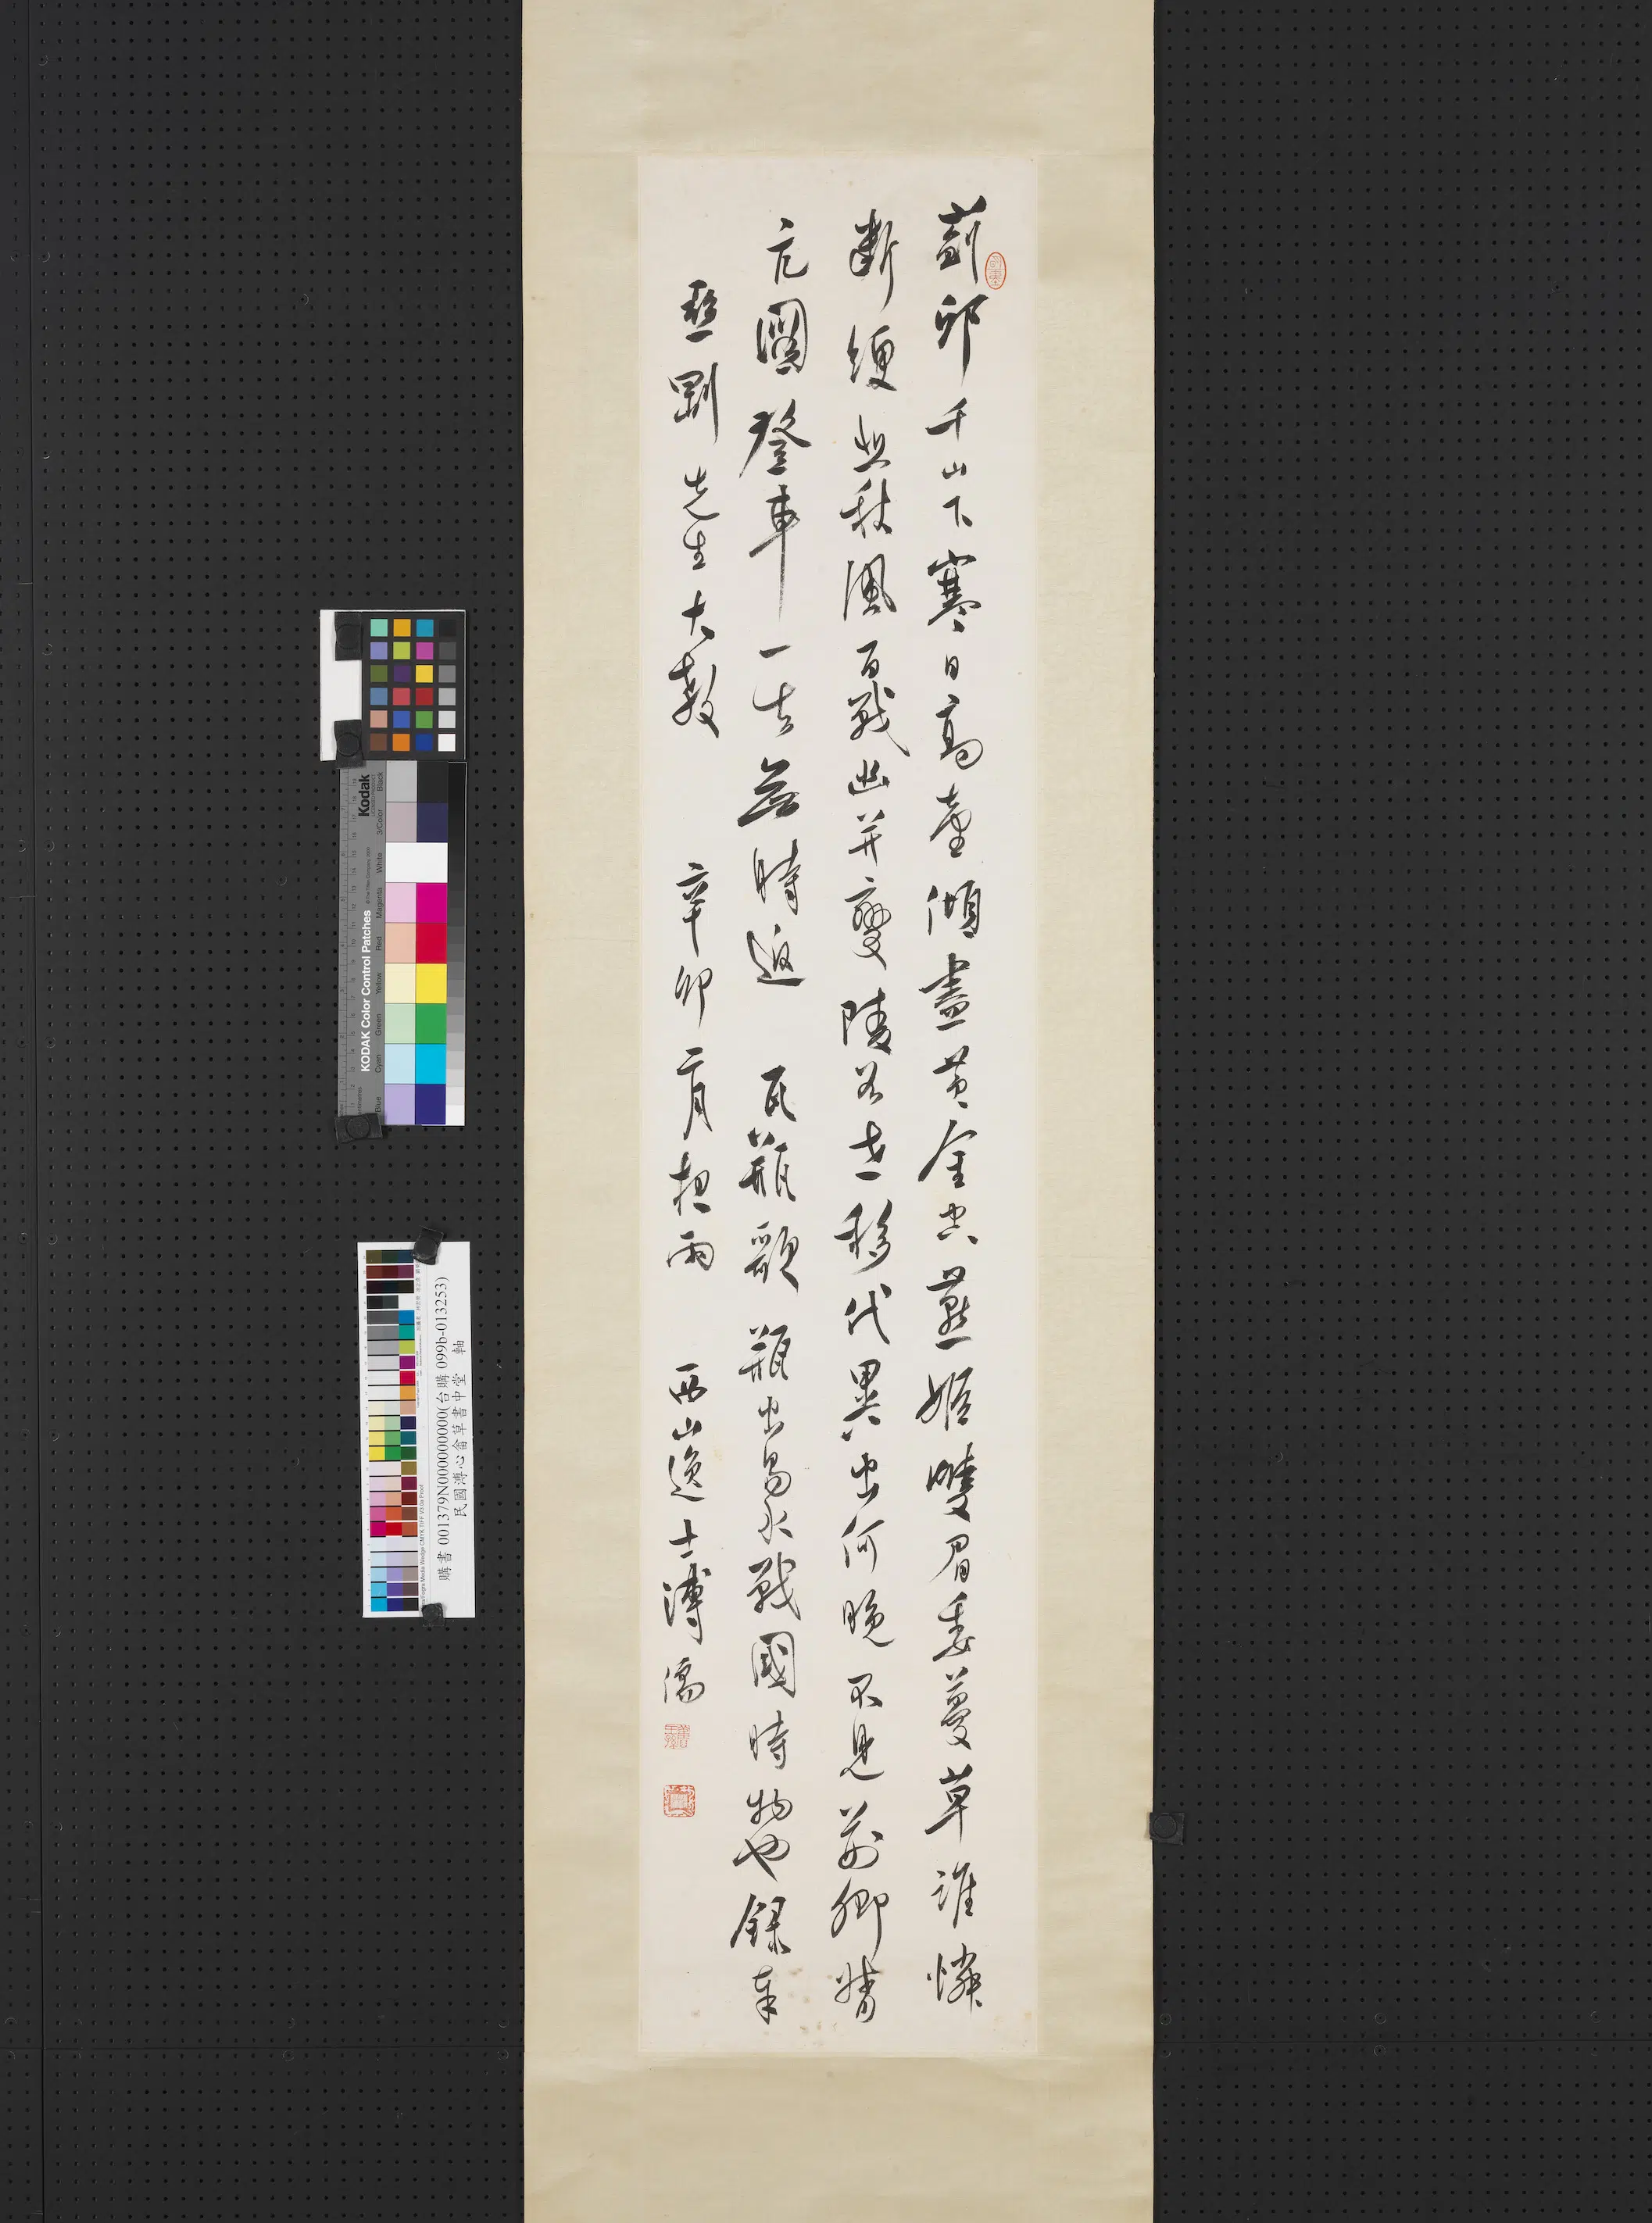 薊邱千山下寒日高臺傾盡黃金空燕姬雙眉委蔓草誰憐
斷綆悲秋風百戰幽并變陵谷世移代異出何晚不見荊卿督
亢圖登車一去無時返 瓦瓶歌 瓶出易水戰國時物也錄奉
剛先生大教 辛卯二月 雨 西山逸士溥儒
Kodak
KODAK Color Control Patches
Blue Cyan Green Yellow Red Magenta White 3/Color Black
購書 001379N000000000(台購 099b-013253)
民國溥心畬草書中堂 軸